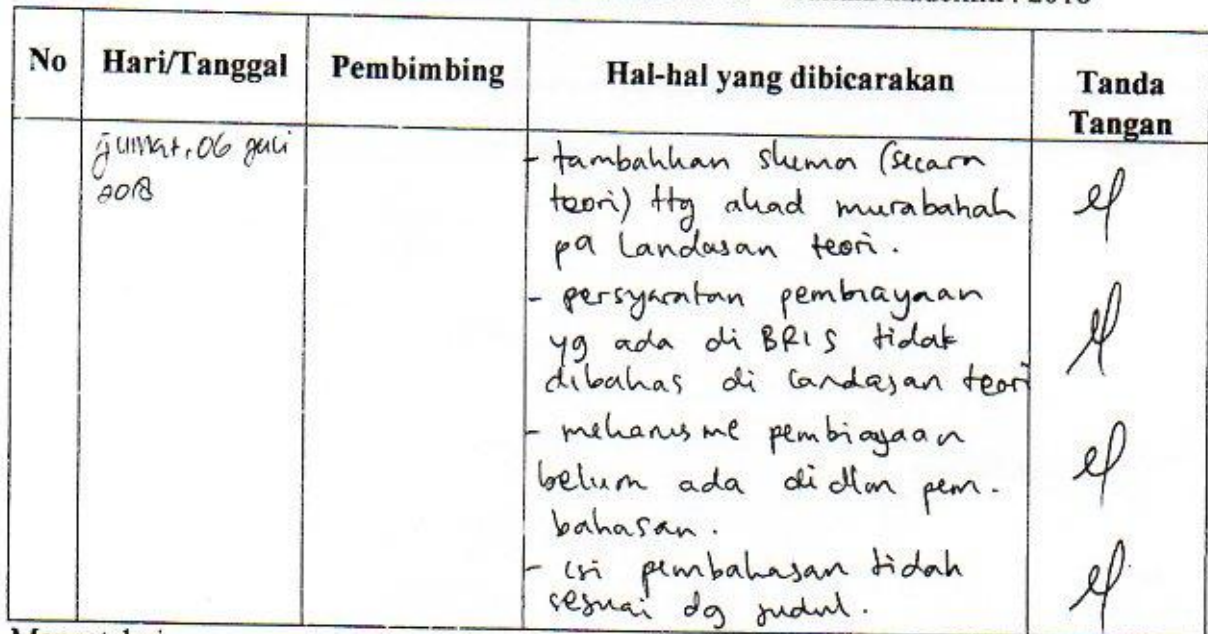 2018
No Hari/Tanggal Pembimbing Hal-hal yang dibicarakan Tanda Tangan
jumat, 06 juli
2018
- tambahkan skema (secara
teori) ttg akad murabahah
pa Landasan teori.
- persyaratan pembiayaan
yg ada di BRIS tidak
dibahas di landasan teori
- mekanisme pembiayaan
belum ada di dlm pem-
bahasan.
- isi pembahasan tidak
sesuai dg judul.